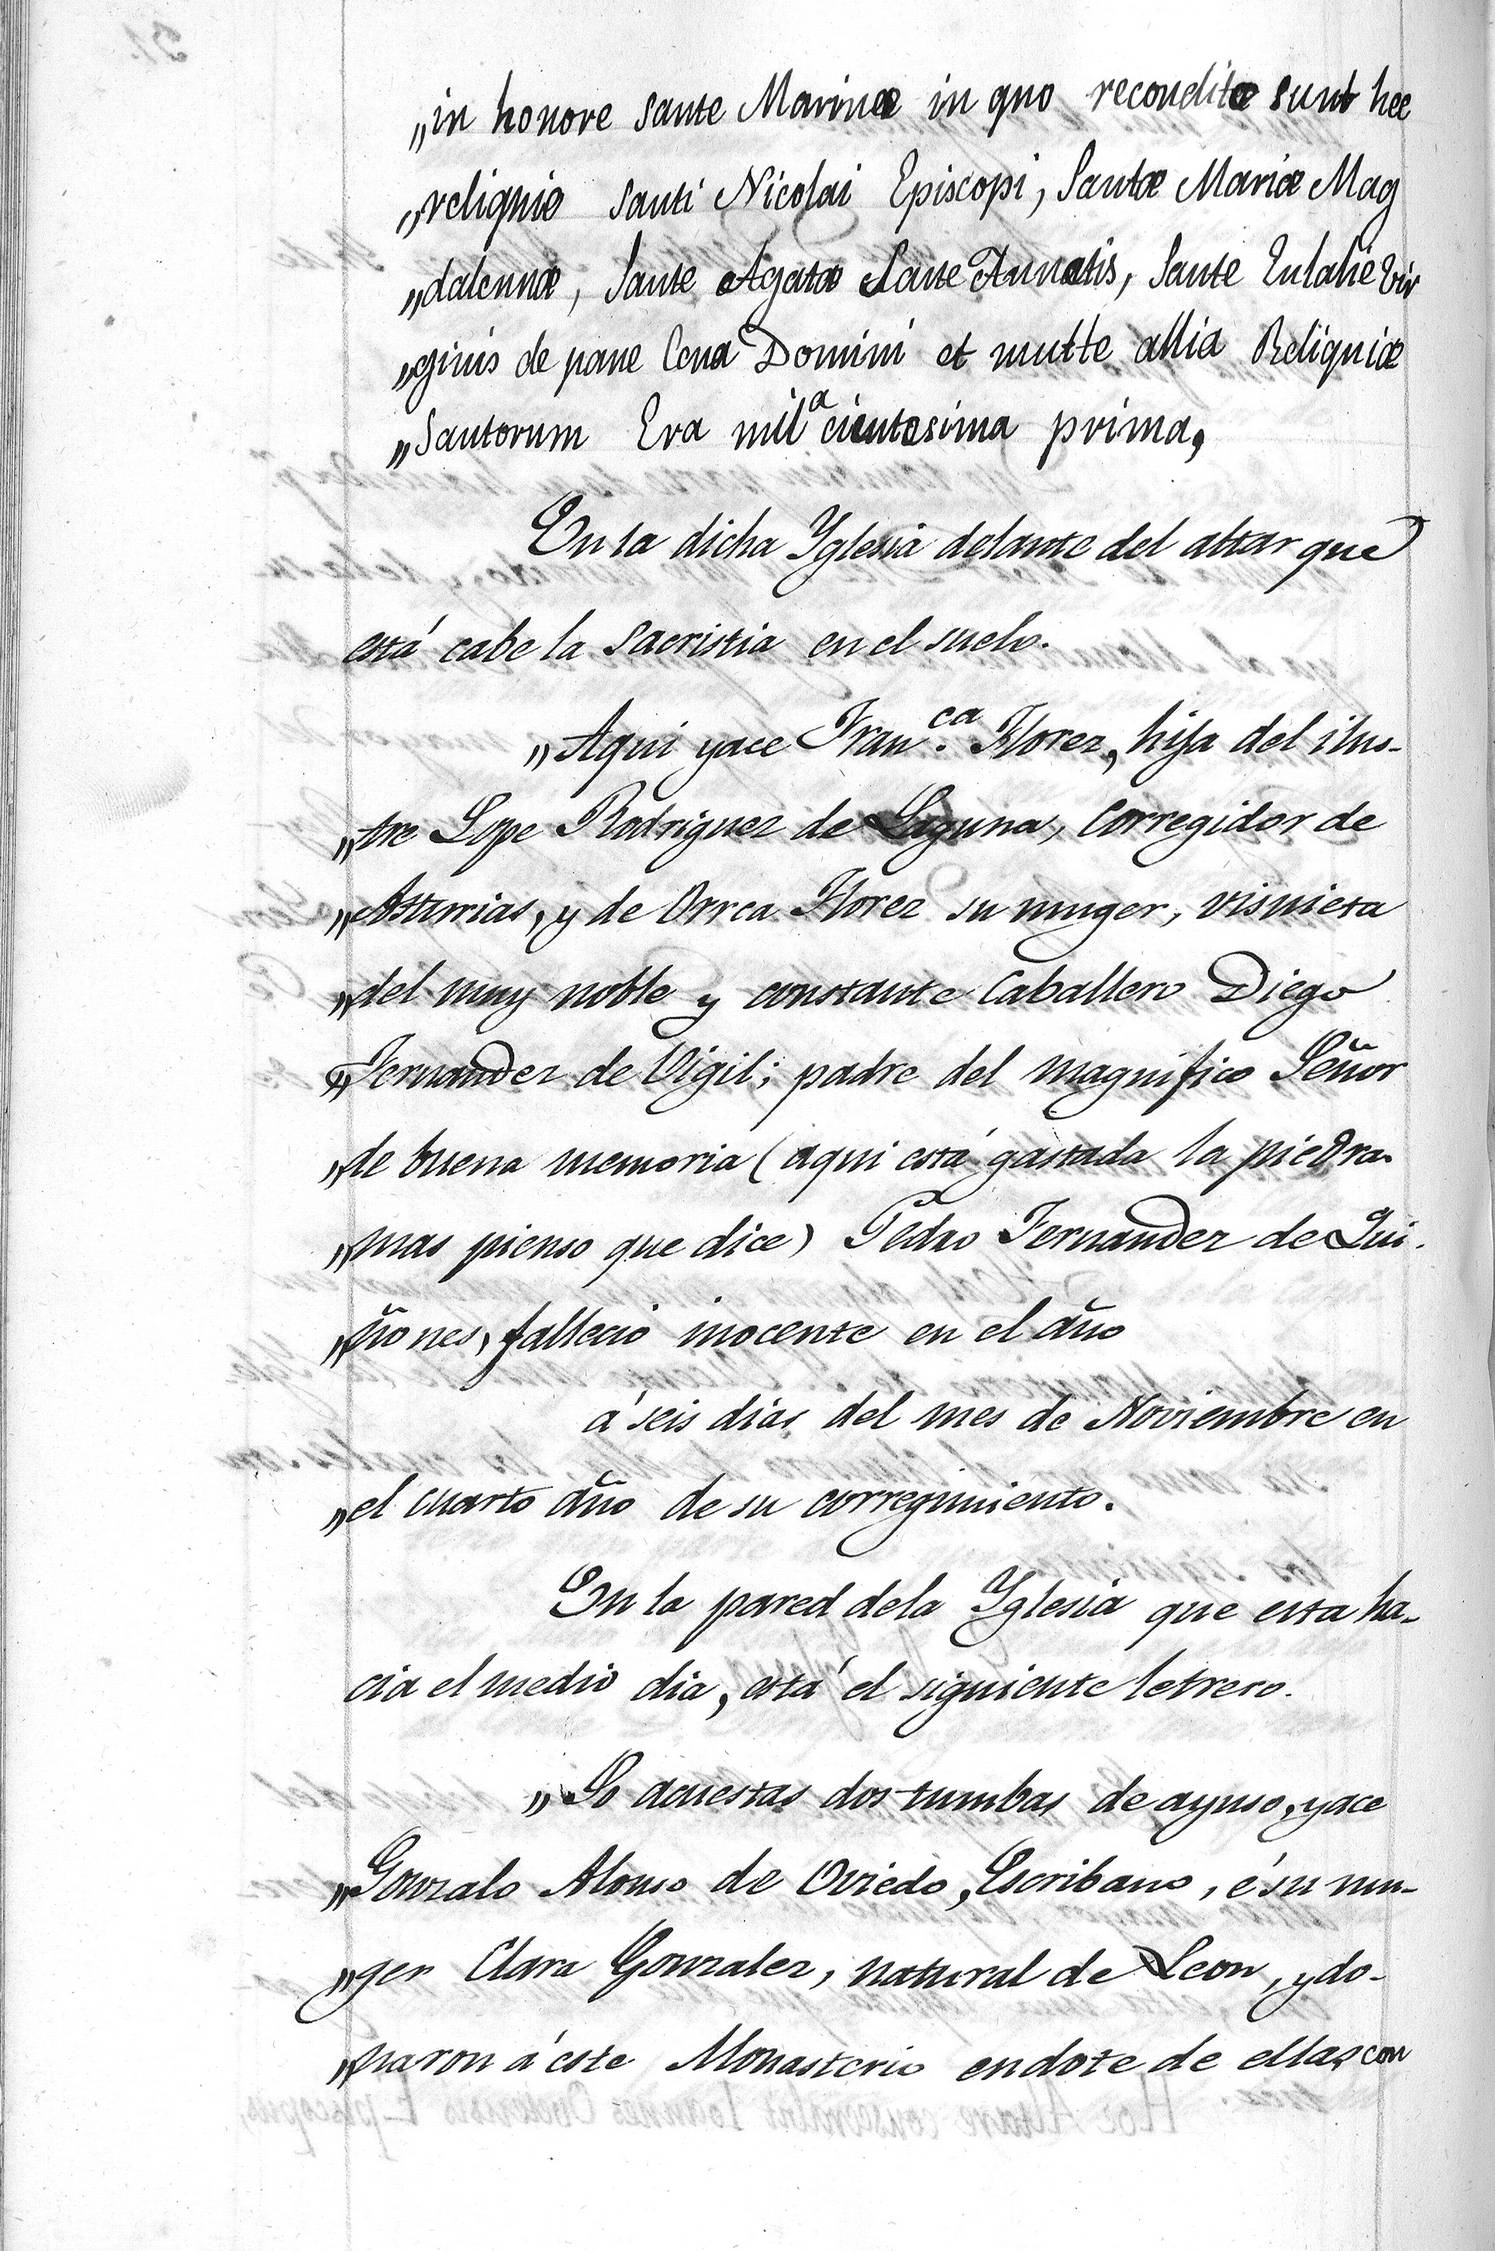 „in honore sante Marinæ in quo reconditæ sunt hec
„reliquie santi Nicolai Episcopi, Santæ Mariæ Mag
„dalennæ, Sante Agatæ Sante Annatis, Sante Eulalie Vir
„ginis de pane Cena Domini et multe allia Reliquiæ
„Santorum Era milª cientesima prima,
En la dicha Yglesia delante del altar que
está cabe la Sacristia en el suelo.
„Aqui yace Fran.ca Florez, hija del ilus-
„tre Lope Rodriguez de Laguna, Corregidor de
„Asturias, y de Orrca Florez su muger, visnieta
„del muy noble y constante Caballero Diego
„Fernandez de Vigil; padre del magnifico Señor
„de buena memoria (aqui está gastada la piedra.
„mas pienso que dice) Pedro Fernandez de Qui.
„ñones, fallecio inocente en el año
á seis dias del mes de Noviembre en
„el cuarto año de su corregimiento.
En la pared dela Yglesia que esta ha-
cia el medio dia, está el siguiente letrero.
„So aquestas dos tumbas de ayuso, yace
„Gonzalo Alonso de Oviedo, Escribano, é su mu-
„ger Clara Gonzalez, natural de Leon, y do-
„naron á este Monasterio endote de ellas con